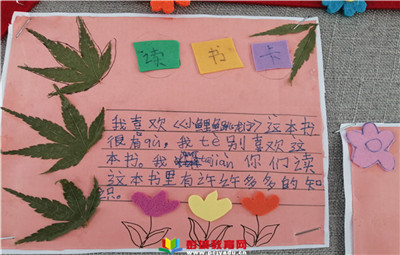 读 书 卡
我喜欢《小鲤鱼》这本书
很有qù,我tè别喜欢这
本书。我 你们读
这本书里有许许多多的知
识。
教育网